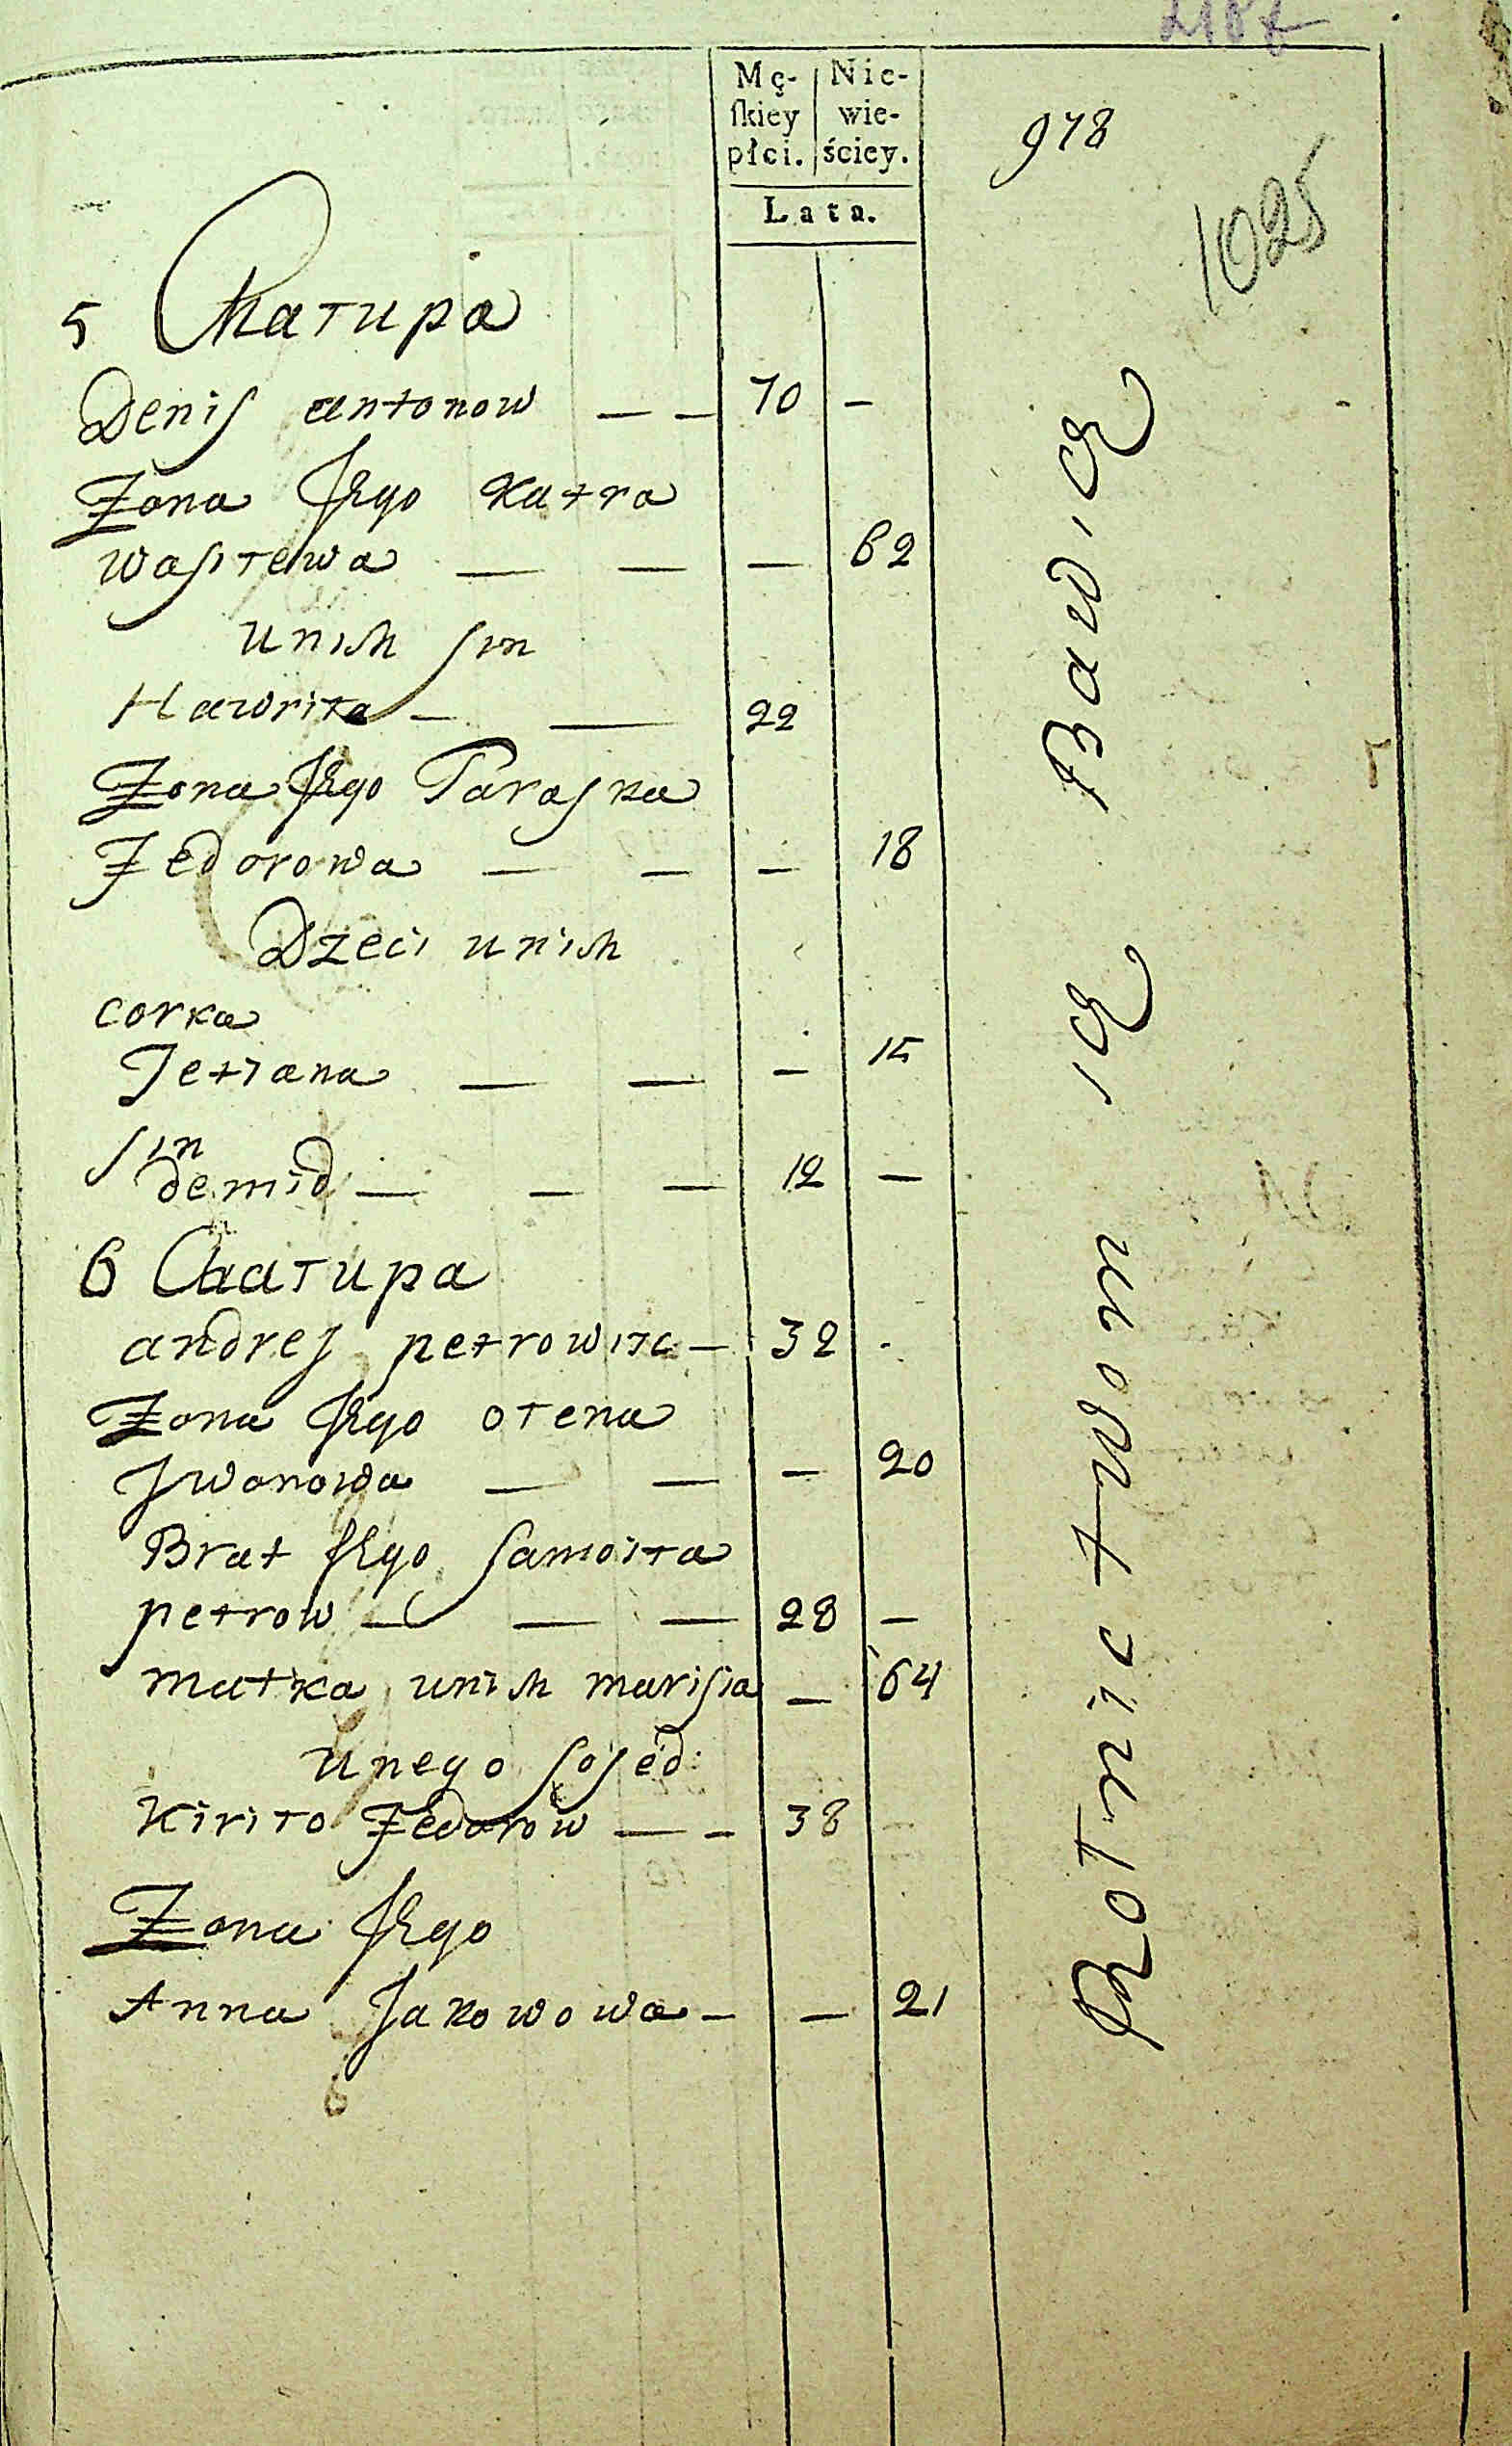 Mę-
skiey
płci.
Nie-
wie-
ściey.
Lata.
978
1025
5 Chatupa
Denis antonow — — 70 —
Zona Jego katra
wasitewa — — — 62
unich sin
Hawrita — — 22
Zona Jego Paraska
Fedorowa — — — 18
Dzeci unich
corka
Tetiana — — — 15
sin
demid — — — 12 —
6 Chatupa
andrej petrowitc — 32 -
Zona Jego otena
Jwanowa — — — 20
Brat Jego samoita
petrow — — — 28 —
matka unich marisia — 64
unego sosed:
Kirito Fedorow — — 38
Zona Jego
Anna Jakowowa — — 21
Rotnictwom ie Bawic